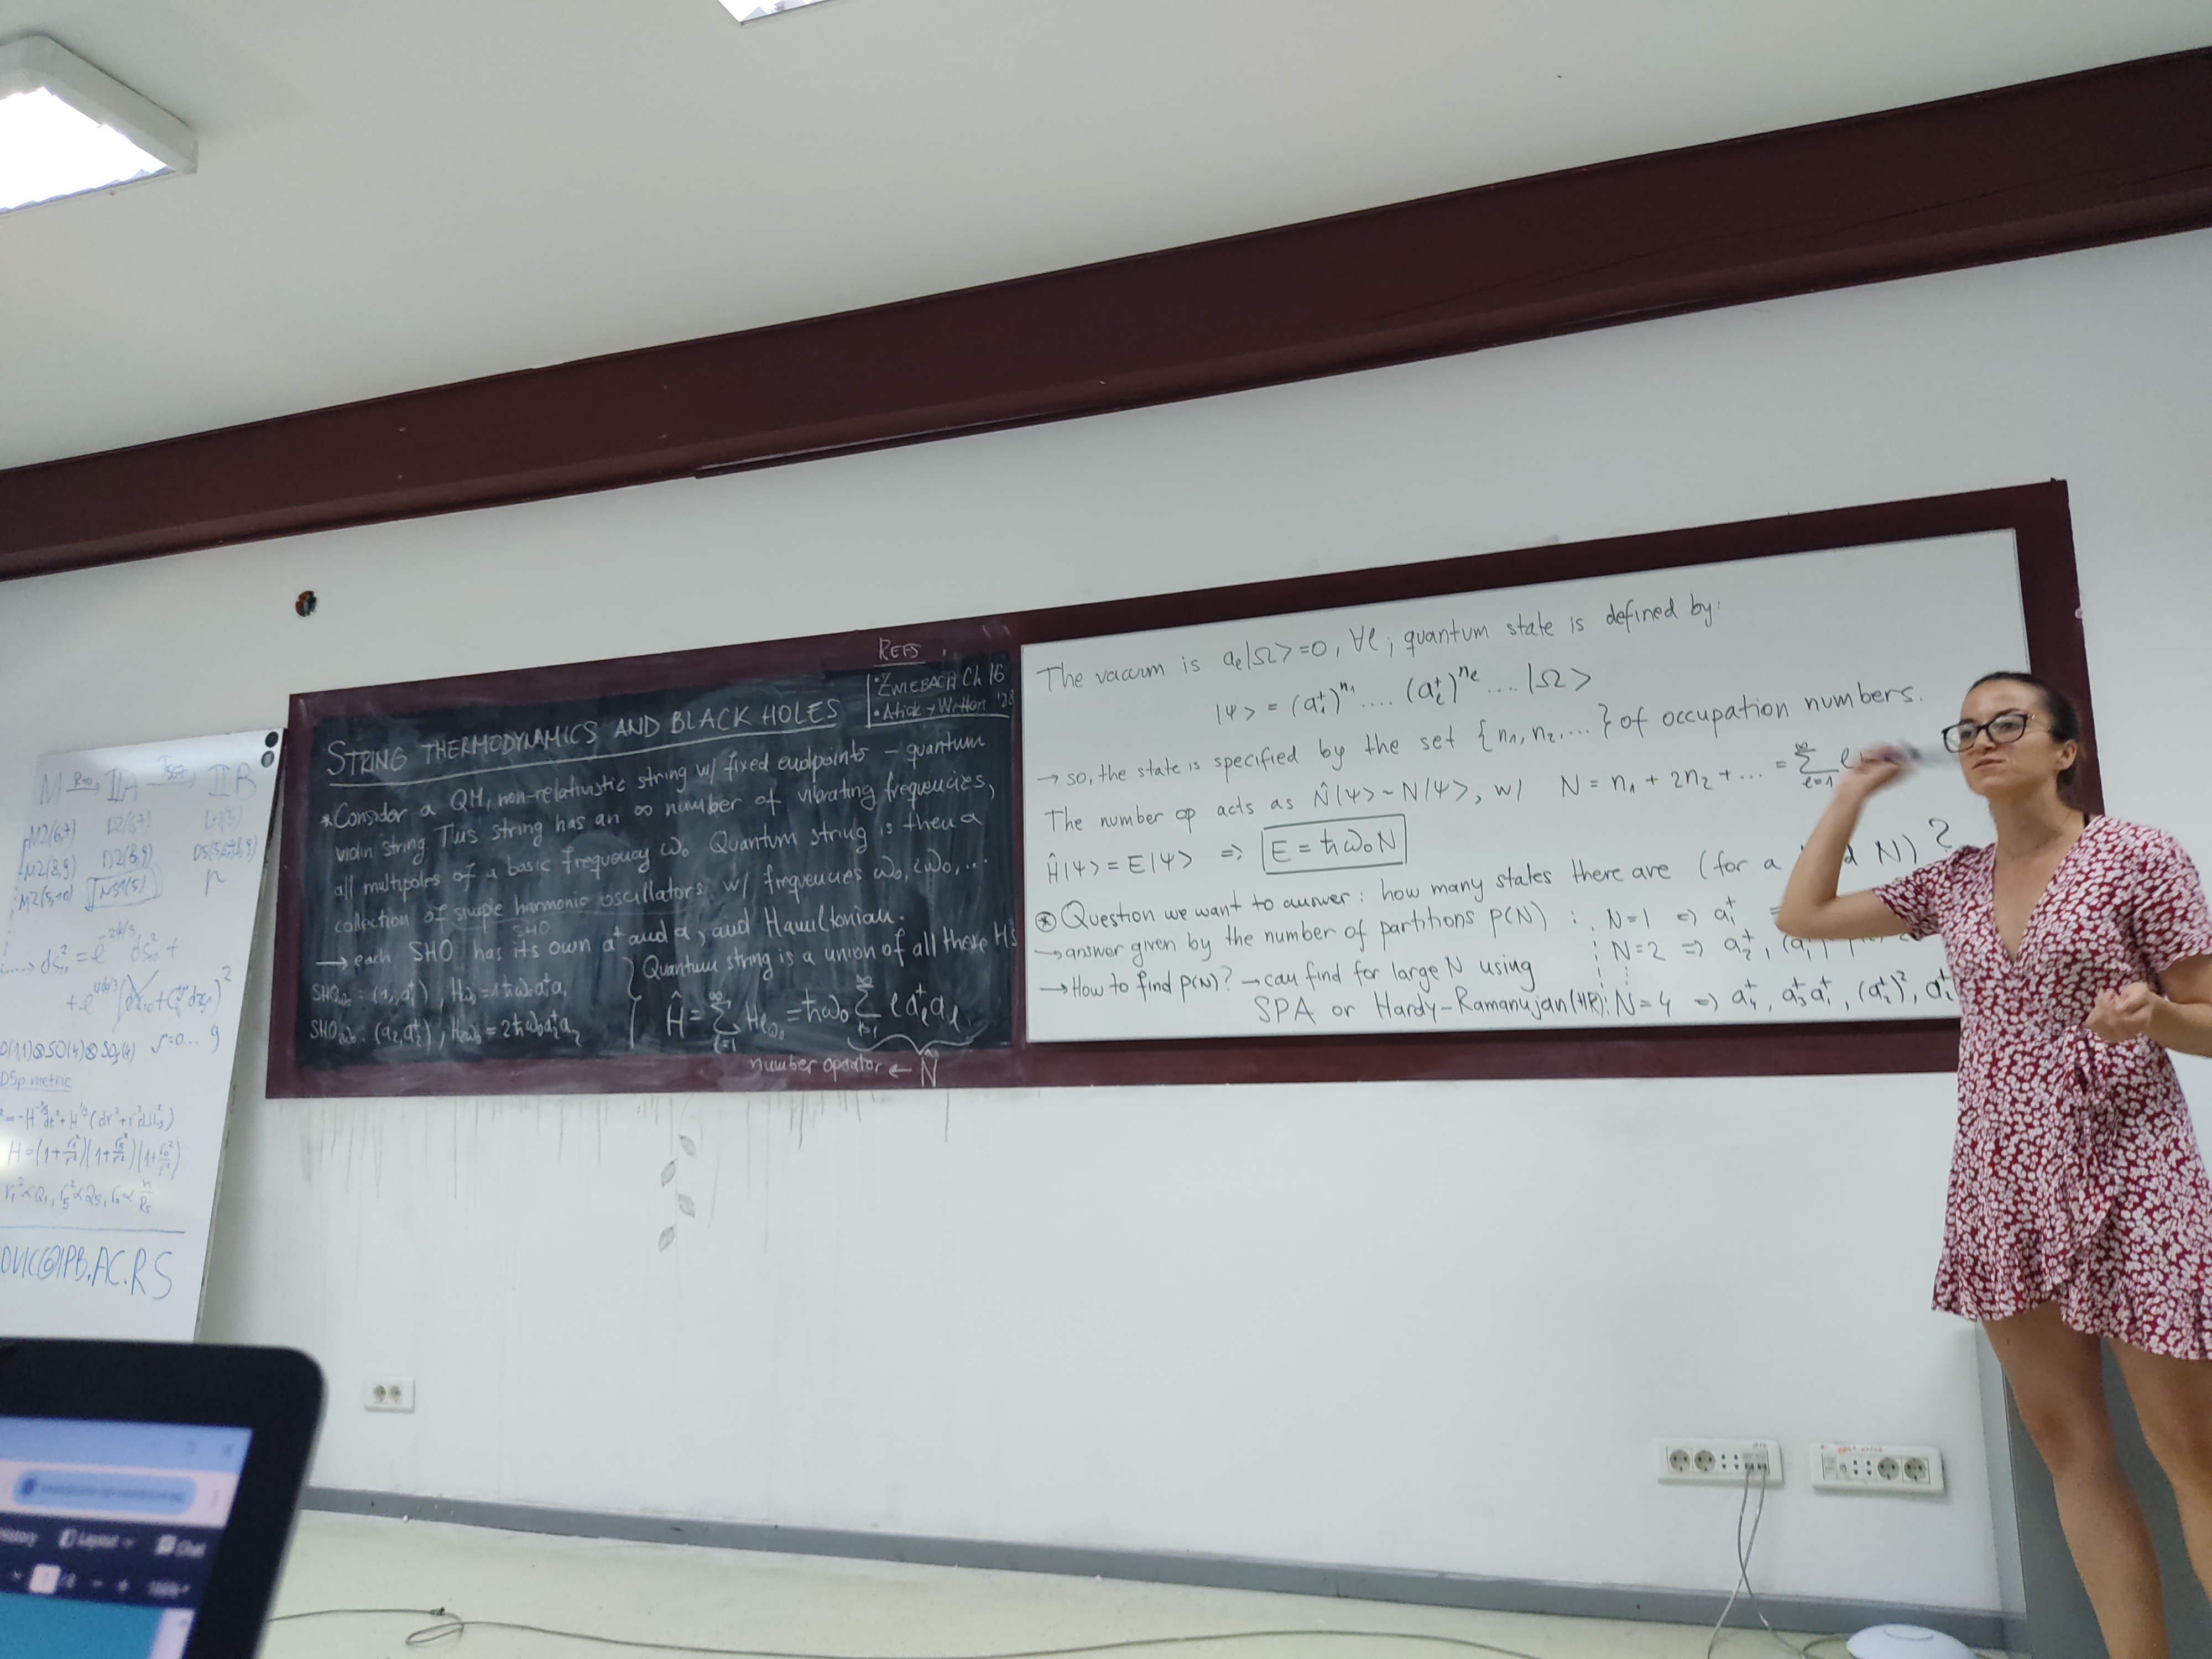 M R→0 IIA T5,6,7 IIB
M2(6,7) D2(6,7)
M2(8,9) D2(8,9)
M2(5,10) NS1(5) P
D5p metric
r₁² ∝ Q₁, r₅² ∝ Q₅,
OVIC@IPB.AC.RS
REFS
• ZWIEBACH Ch 16
• Atick + Witten '88
STRING THERMODYNAMICS AND BLACK HOLES
*Consider a QM, non-relativistic string w/ fixed endpoints – quantum
violin string This string has an ∞ number of vibrating frequencies,
all multiples of a basic frequency ω₀ Quantum string is then a
collection of simple harmonic oscillators w/ frequencies ω₀, 2ω₀, ...
SHO
→ each SHO has its own a⁺ and a, and Hamiltonian.
SHO_ω₀ : (a₁, a₁⁺), H_ω₀ = 1ħω₀a₁⁺a₁
SHO_2ω₀ : (a₂, a₂⁺), H_2ω₀ = 2ħω₀a₂⁺a₂
} Quantum string is a union of all these Hs
Ĥ = Σ_{l=1}^∞ H_lω₀ = ħω₀ Σ_{l=1}^∞ l a_l⁺ a_l
number operator ← N̂
The vacuum is a_l|Ω> = 0, ∀l ; quantum state is defined by:
|Ψ> = (a₁⁺)^n₁ .... (a_l⁺)^n_l .... |Ω>
→ so, the state is specified by the set {n₁, n₂, ....} of occupation numbers.
The number op acts as N̂|Ψ> = N|Ψ>, w/ N = n₁ + 2n₂ + ... = Σ_{l=1}^∞ l
Ĥ|Ψ> = E|Ψ> => E = ħω₀N
⊛ Question we want to answer : how many states there are (for a N) ?
→ answer given by the number of partitions p(N) : N=1 => a₁⁺
N=2 => a₂⁺, (a₁⁺)
→ How to find p(N)? → can find for large N using
SPA or Hardy-Ramanujan (HR): N=4 => a₄⁺, a₃⁺a₁⁺, (a₂⁺)², a₂⁺
Layout
Chat